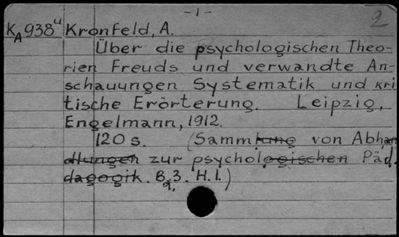 - 1 -
2
K A 938 u Kronfeld, A.
Über die psychologischen Theo-
rien Freuds und verwandte An-
schauungen. Systematik und kri
tische Erörterung. Leipzig,
Engelmann, 1912.
120 s. (Sammlung von Abhan
dlungen zur psychologischen Päd
dagogik. Bd. 3. H. 1.)